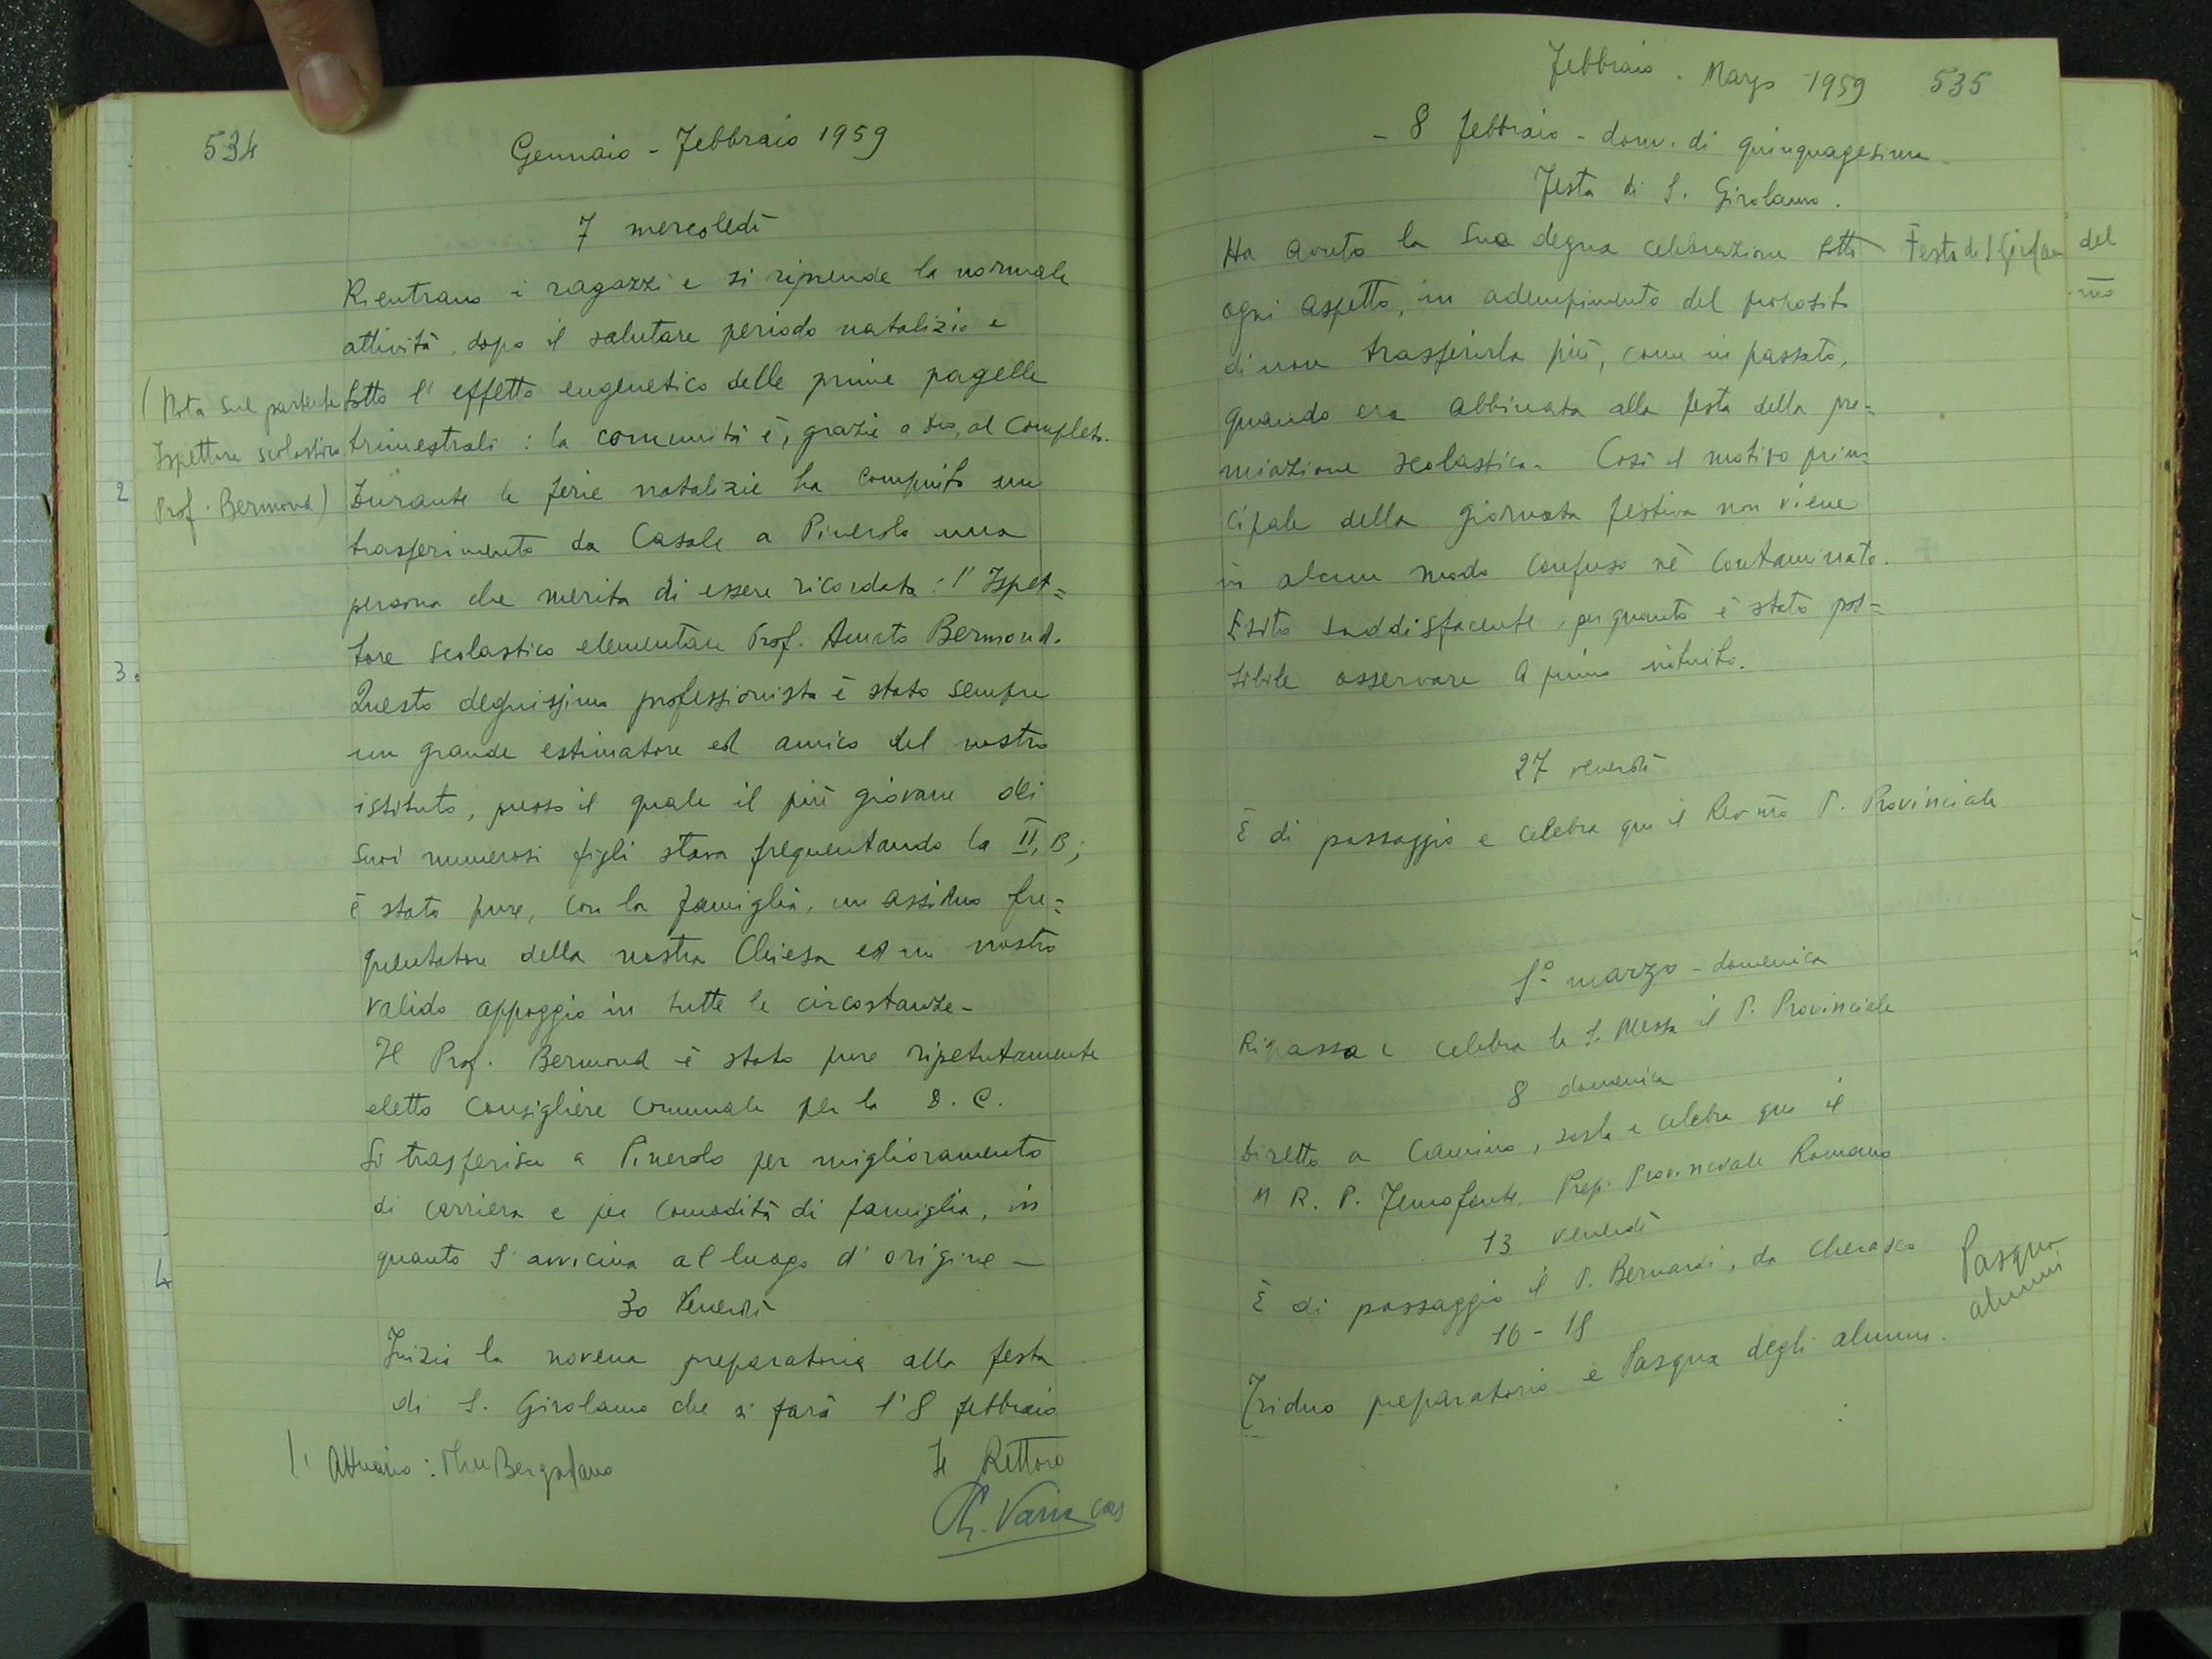 534
Gennaio - Febbraio 1959
7 mercoledì
Rientrano i ragazzi e si riprende la normale
attività, dopo il salutare periodo natalizio e
sotto l'effetto eugenetico delle prime pagelle
trimestrali: la comunità è, grazie a Dio, al completo.
(Nota sul partente
Ispettore scolastico
Prof. Bermond)
Durante le ferie natalizie ha compiuto un
trasferimento da Casale a Pinerolo una
persona che merita di essere ricordata: l'Ispet=
tore scolastico elementare Prof. Amato Bermond.
Questo degnissimo professionista è stato sempre
un grande estimatore ed amico del nostro
istituto, presso il quale il più giovane dei
suoi numerosi figli stava frequentando la II, B;
è stato pure, con la famiglia, un assiduo fre=
quentatore della nostra Chiesa ed un nostro
valido appoggio in tutte le circostanze-
Il Prof. Bermond è stato pure ripetutamente
eletto Consigliere comunale per la D. C.
Si trasferisce a Pinerolo per miglioramento
di carriera e per comodità di famiglia, in
quanto s'avvicina al luogo d'origine -
30 Venerdì
Inizia la novena preparatoria alla festa
di S. Girolamo che si farà l'8 febbraio
L'Attuario:
Il Rettore
2
3.
4
Febbraio - Marzo 1959 535
- 8 febbraio - dom. di quinquagesima -
Festa di S. Girolamo.
Ha avuto la sua degna celebrazione sotto
Festa di S.
del
ogni aspetto, in adempimento del proposito
di non trasferirla più, come in passato,
quando era abbinata alla festa della pre=
miazione scolastica. Così il motivo prin=
cipale della giornata festiva non viene
in alcun modo confuso nè contaminato.
Esito soddisfacente, per quanto è stato pos=
sibile osservare a primo intuito.
27 venerdì
È di passaggio e celebra qui il Rev.mo P. Provinciale
1° marzo - domenica
Ripassa e celebra la S. Messa il P. Provinciale
8 domenica
Diretto a Camino, sosta e celebra qui il
M. R. P. Prep. Provinciale Romano
13 venerdì
È di passaggio il P. Bernardi, da Cherasco
16 - 18
Triduo preparatorio e Pasqua degli alunni.
Pasqua
alunni